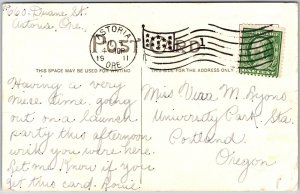 Duane St.
Astoria, Ore.
ASTORIA
4 PM
1911
ORE.
POST CARD
THIS SPACE MAY BE USED FOR WRITING
THIS SIDE FOR THE ADDRESS ONLY
Having a very
nice time, going
out on a launch
party this afternoon
wish you were here.
Let me know if you
get this card.
Miss Vera M. Lyons
University Park Sta.
Portland
Oregon